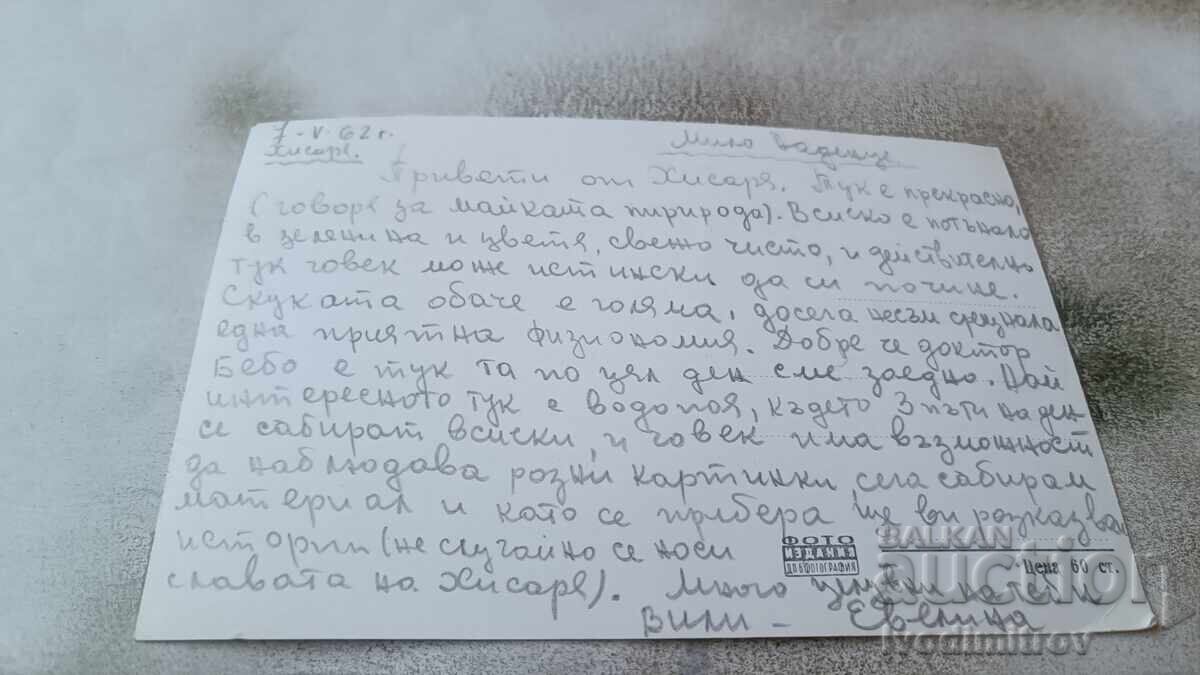 7-V-62 г.
Хисаря.
Мило Наденце.
Привети от Хисаря. Тук е прекрасно,
(говоря за майката природа). Всиско е потънало
в зеленина и цветя, свежо чисто, и действително
тук човек може истински да си почине.
Скуката обаче е голяма, досега несъм срещнала
една приятна физиономия. Добре че доктор
Бебо е тук та по цял ден сме заедно. Най
интересното тук е водопоя, където 3 пъти на ден
се сабират всиски, и човек има възможност
да наблюдава разни картинки, сега сабирам
материал и като се прибера ще ви разказвам
истории (не случайно се носи
славата на Хисаря). Много целувки на
Вили - Евелина
ФОТО
ИЗДАНИЯ
ДПБФОТОГРАФИЯ
Цена 60 ст.
BALKAN
auction
ivodimitrov